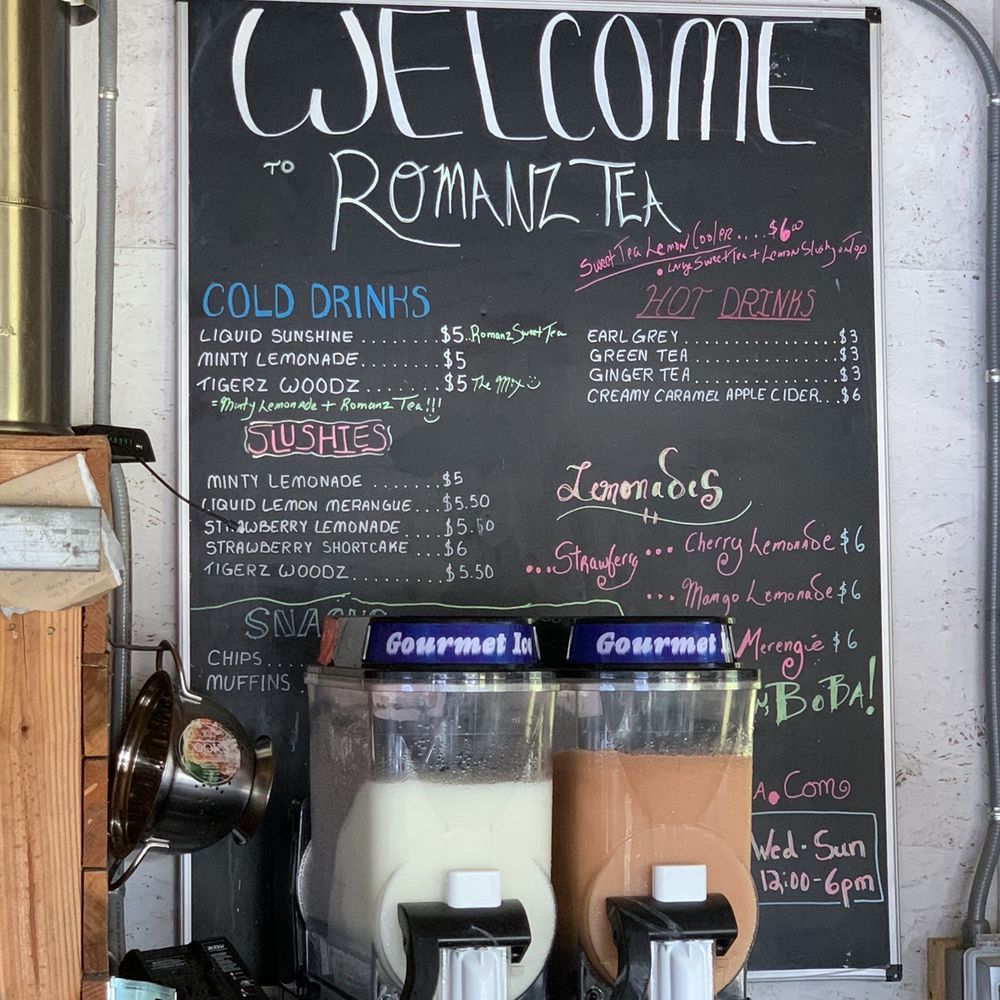 WELCOME
TO ROMANZ TEA
Sweet Tea Lemon Cooler....$6.00
• Large Sweet Tea + Lemon Slushy on Top
COLD DRINKS
LIQUID SUNSHINE ........$5..Romanz Sweet Tea
MINTY LEMONADE........$5
TIGERZ WOODZ.......$5 The Mix
=Minty Lemonade + Romanz Tea!!!
HOT DRINKS
EARL GREY.................$3
GREEN TEA................$3
GINGER TEA................$3
CREAMY CARAMEL APPLE CIDER...$6
SLUSHIES
MINTY LEMONADE ........$5
LIQUID LEMON MERANGUE...$5.50
STRAWBERRY LEMONADE ....$5.50
STRAWBERRY SHORTCAKE...$6
TIGERZ WOODZ..........$5.50
Lemonades
...Strawferry... Cherry Lemonade $6
... Mango Lemonade $6
Merengie $6
BOBA!
SNACKS
CHIPS....
MUFFINS
.Com
Wed-Sun
12:00-6pm
Gourmet
Gourmet